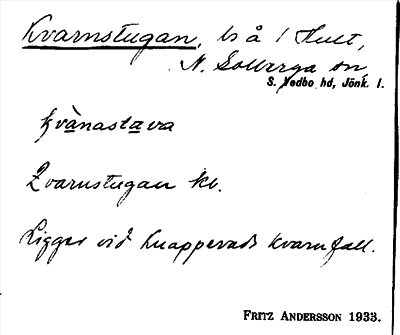 Kvarnstugan, bs å 1 Hult,
N. Solberga sn,
S. Vedbo hd, Jönk. l.
kvànastava
Qvarnstugan kb.
Ligger vid Knappevads kvarnfall.
FRITZ ANDERSSON 1933.